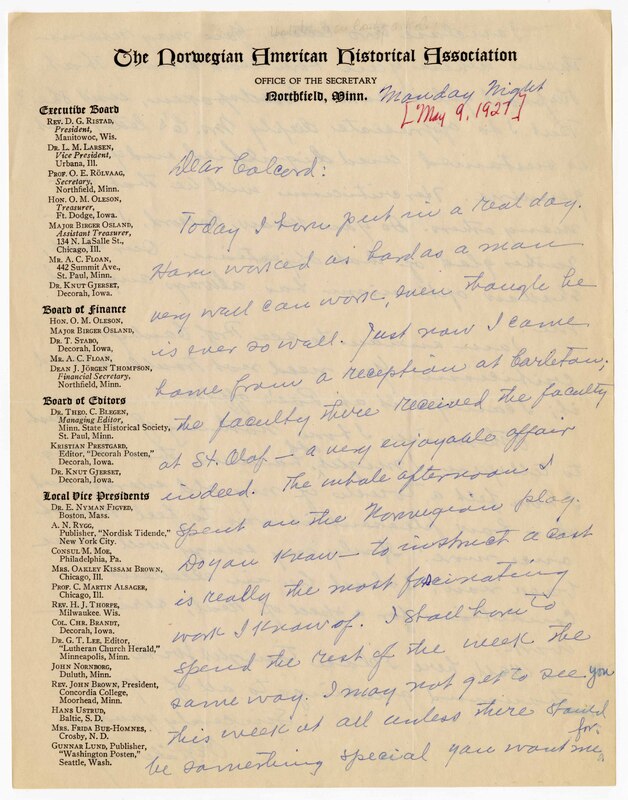 The Norwegian American Historical Association
OFFICE OF THE SECRETARY
Northfield, Minn.
Monday Night
[May 9, 1927]
Executive Board
REV. D. G. RISTAD,
President,
Manitowoc, Wis.
DR. L. M. LARSEN,
Vice President,
Urbana, Ill.
PROF. O. E. RÖLVAAG,
Secretary,
Northfield, Minn.
HON. O. M. OLESON,
Treasurer,
Ft. Dodge, Iowa.
MAJOR BIRGER OSLAND,
Assistant Treasurer,
134 N. LaSalle St.,
Chicago, Ill.
MR. A. C. FLOAN,
442 Summit Ave.,
St. Paul, Minn.
DR. KNUT GJERSET,
Decorah, Iowa.
Board of Finance
HON. O. M. OLESON,
MAJOR BIRGER OSLAND,
DR. T. STABO,
Decorah, Iowa.
MR. A. C. FLOAN,
DEAN J. JÖRGEN THOMPSON,
Financial Secretary,
Northfield, Minn.
Board of Editors
DR. THEO. C. BLEGEN,
Managing Editor,
Minn. State Historical Society,
St. Paul, Minn.
KRISTIAN PRESTGARD,
Editor, "Decorah Posten,"
Decorah, Iowa.
DR. KNUT GJERSET,
Decorah, Iowa.
Local Vice Presidents
DR. E. NYMAN FIGVED,
Boston, Mass.
A. N. RYGG,
Publisher, "Nordisk Tidende,"
New York City.
CONSUL M. MOE,
Philadelphia, Pa.
MRS. OAKLEY KISSAM BROWN,
Chicago, Ill.
PROF. C. MARTIN ALSAGER,
Chicago, Ill.
REV. H. J. THORPE,
Milwaukee. Wis.
COL. CHR. BRANDT,
Decorah, Iowa.
DR. G. T. LEE, Editor,
"Lutheran Church Herald,"
Minneapolis, Minn.
JOHN NORNBORG,
Duluth, Minn.
REV. JOHN BROWN, President,
Concordia College,
Moorhead, Minn.
HANS USTRUD,
Baltic, S. D.
MRS. FRIDA BUE-HOMNES,
Crosby, N. D.
GUNNAR LUND, Publisher,
"Washington Posten,"
Seattle, Wash.
Dear Colcord:
Today I have put in a real day.
Have worked as hard as a man
very well can work, even though he
is ever so well. Just now I came
home from a reception at Carleton;
the faculty there received the faculty
at St. Olaf — a very enjoyable affair
indeed. The whole afternoon I
spent on the Norwegian play.
Do you know — to instruct a cast
is really the most fascinating
work I know of. I shall have to
spend the rest of the week the
same way. I may not get to see you
this week at all unless there should
be something special you want me for.